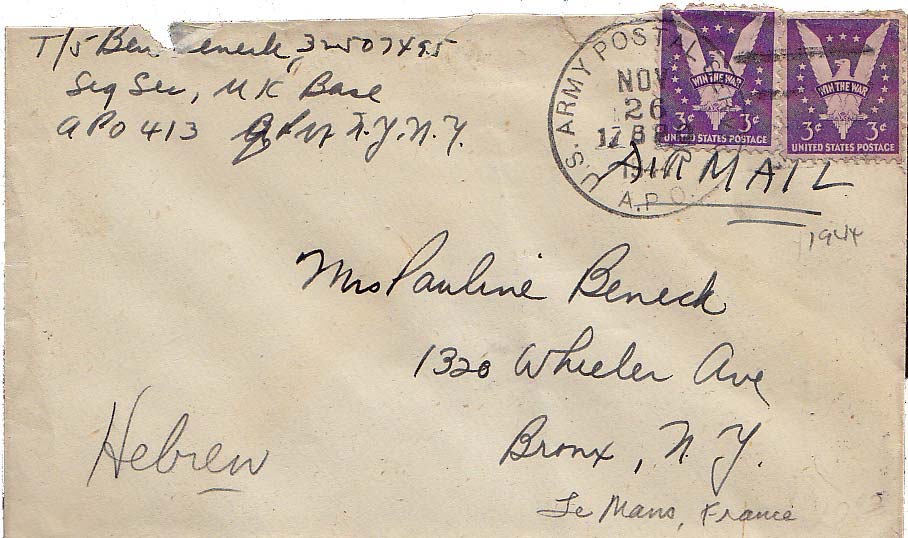 T/5 Ben Beneck, 32507495
Sig Sec, UK Base
APO 413 N.Y. N.Y.
U.S. ARMY POSTAL
NOV
26
A.P.O.
WIN THE WAR
3¢ 3¢
UNITED STATES POSTAGE
WIN THE WAR
3¢ 3¢
UNITED STATES POSTAGE
AIR MAIL
1944
Mrs Pauline Beneck
1320 Wheeler Ave
Bronx, N.Y.
Hebrew
Le Mans, France